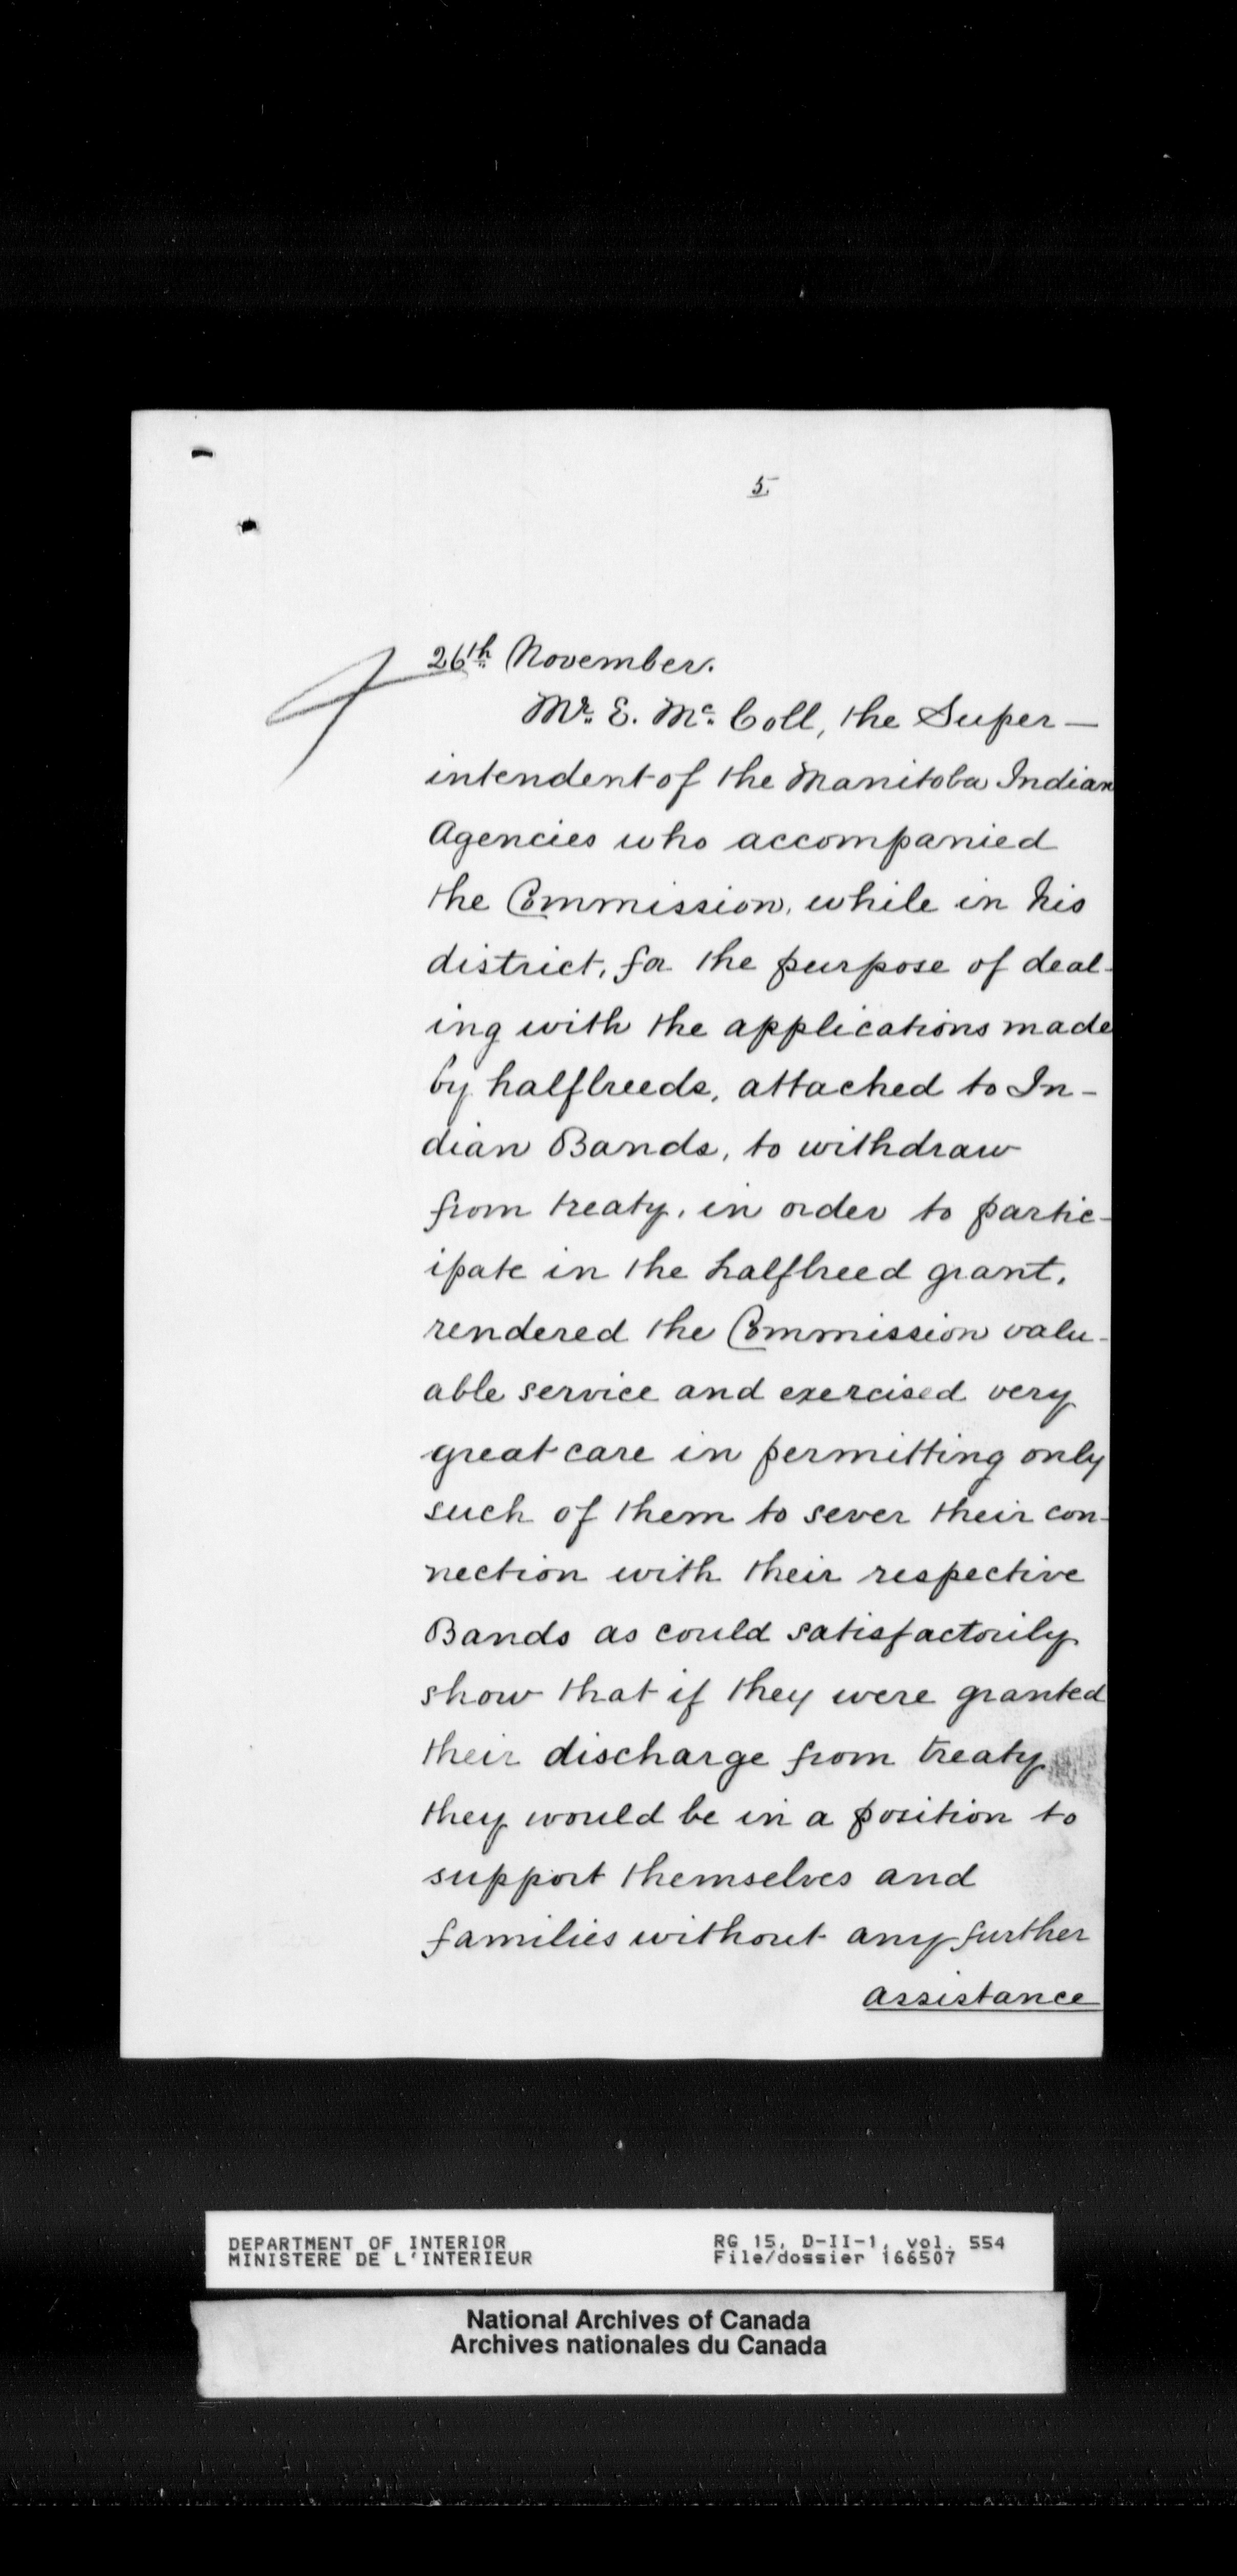 5
26th November.
Mr. E. Mc. Coll, the Super-
intendent of the Manitoba Indian
Agencies who accompanied
the Commission, while in his
district, for the purpose of deal-
ing with the applications made
by halfbreeds, attached to In-
dian Bands, to withdraw
from treaty, in order to partic-
ipate in the halfbreed grant,
rendered the Commission valu-
able service and exercised very
great care in permitting only
such of them to sever their con-
nection with their respective
Bands as could satisfactorily
show that if they were granted
their discharge from treaty
they would be in a position to
support themselves and
families without any further
assistance
DEPARTMENT OF INTERIOR RG 15, D-II-1, vol. 554
MINISTERE DE L'INTERIEUR File/dossier 166507
National Archives of Canada
Archives nationales du Canada